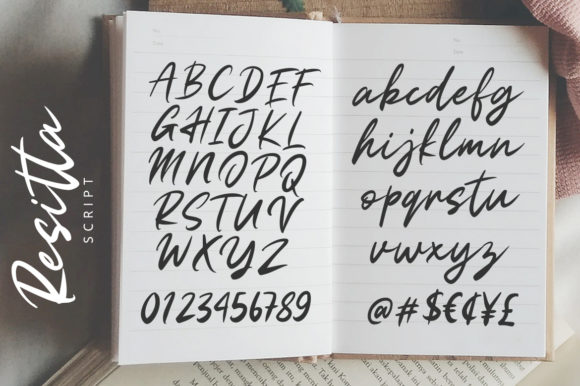 Resitta
SCRIPT
No.
Date
ABCDEF
GHIJKL
MNOPQ
RSTUV
WXYZ
0123456789
No.
Date
abcdefg
hijklmn
opqrstu
vwxyz
@#$€¢¥£